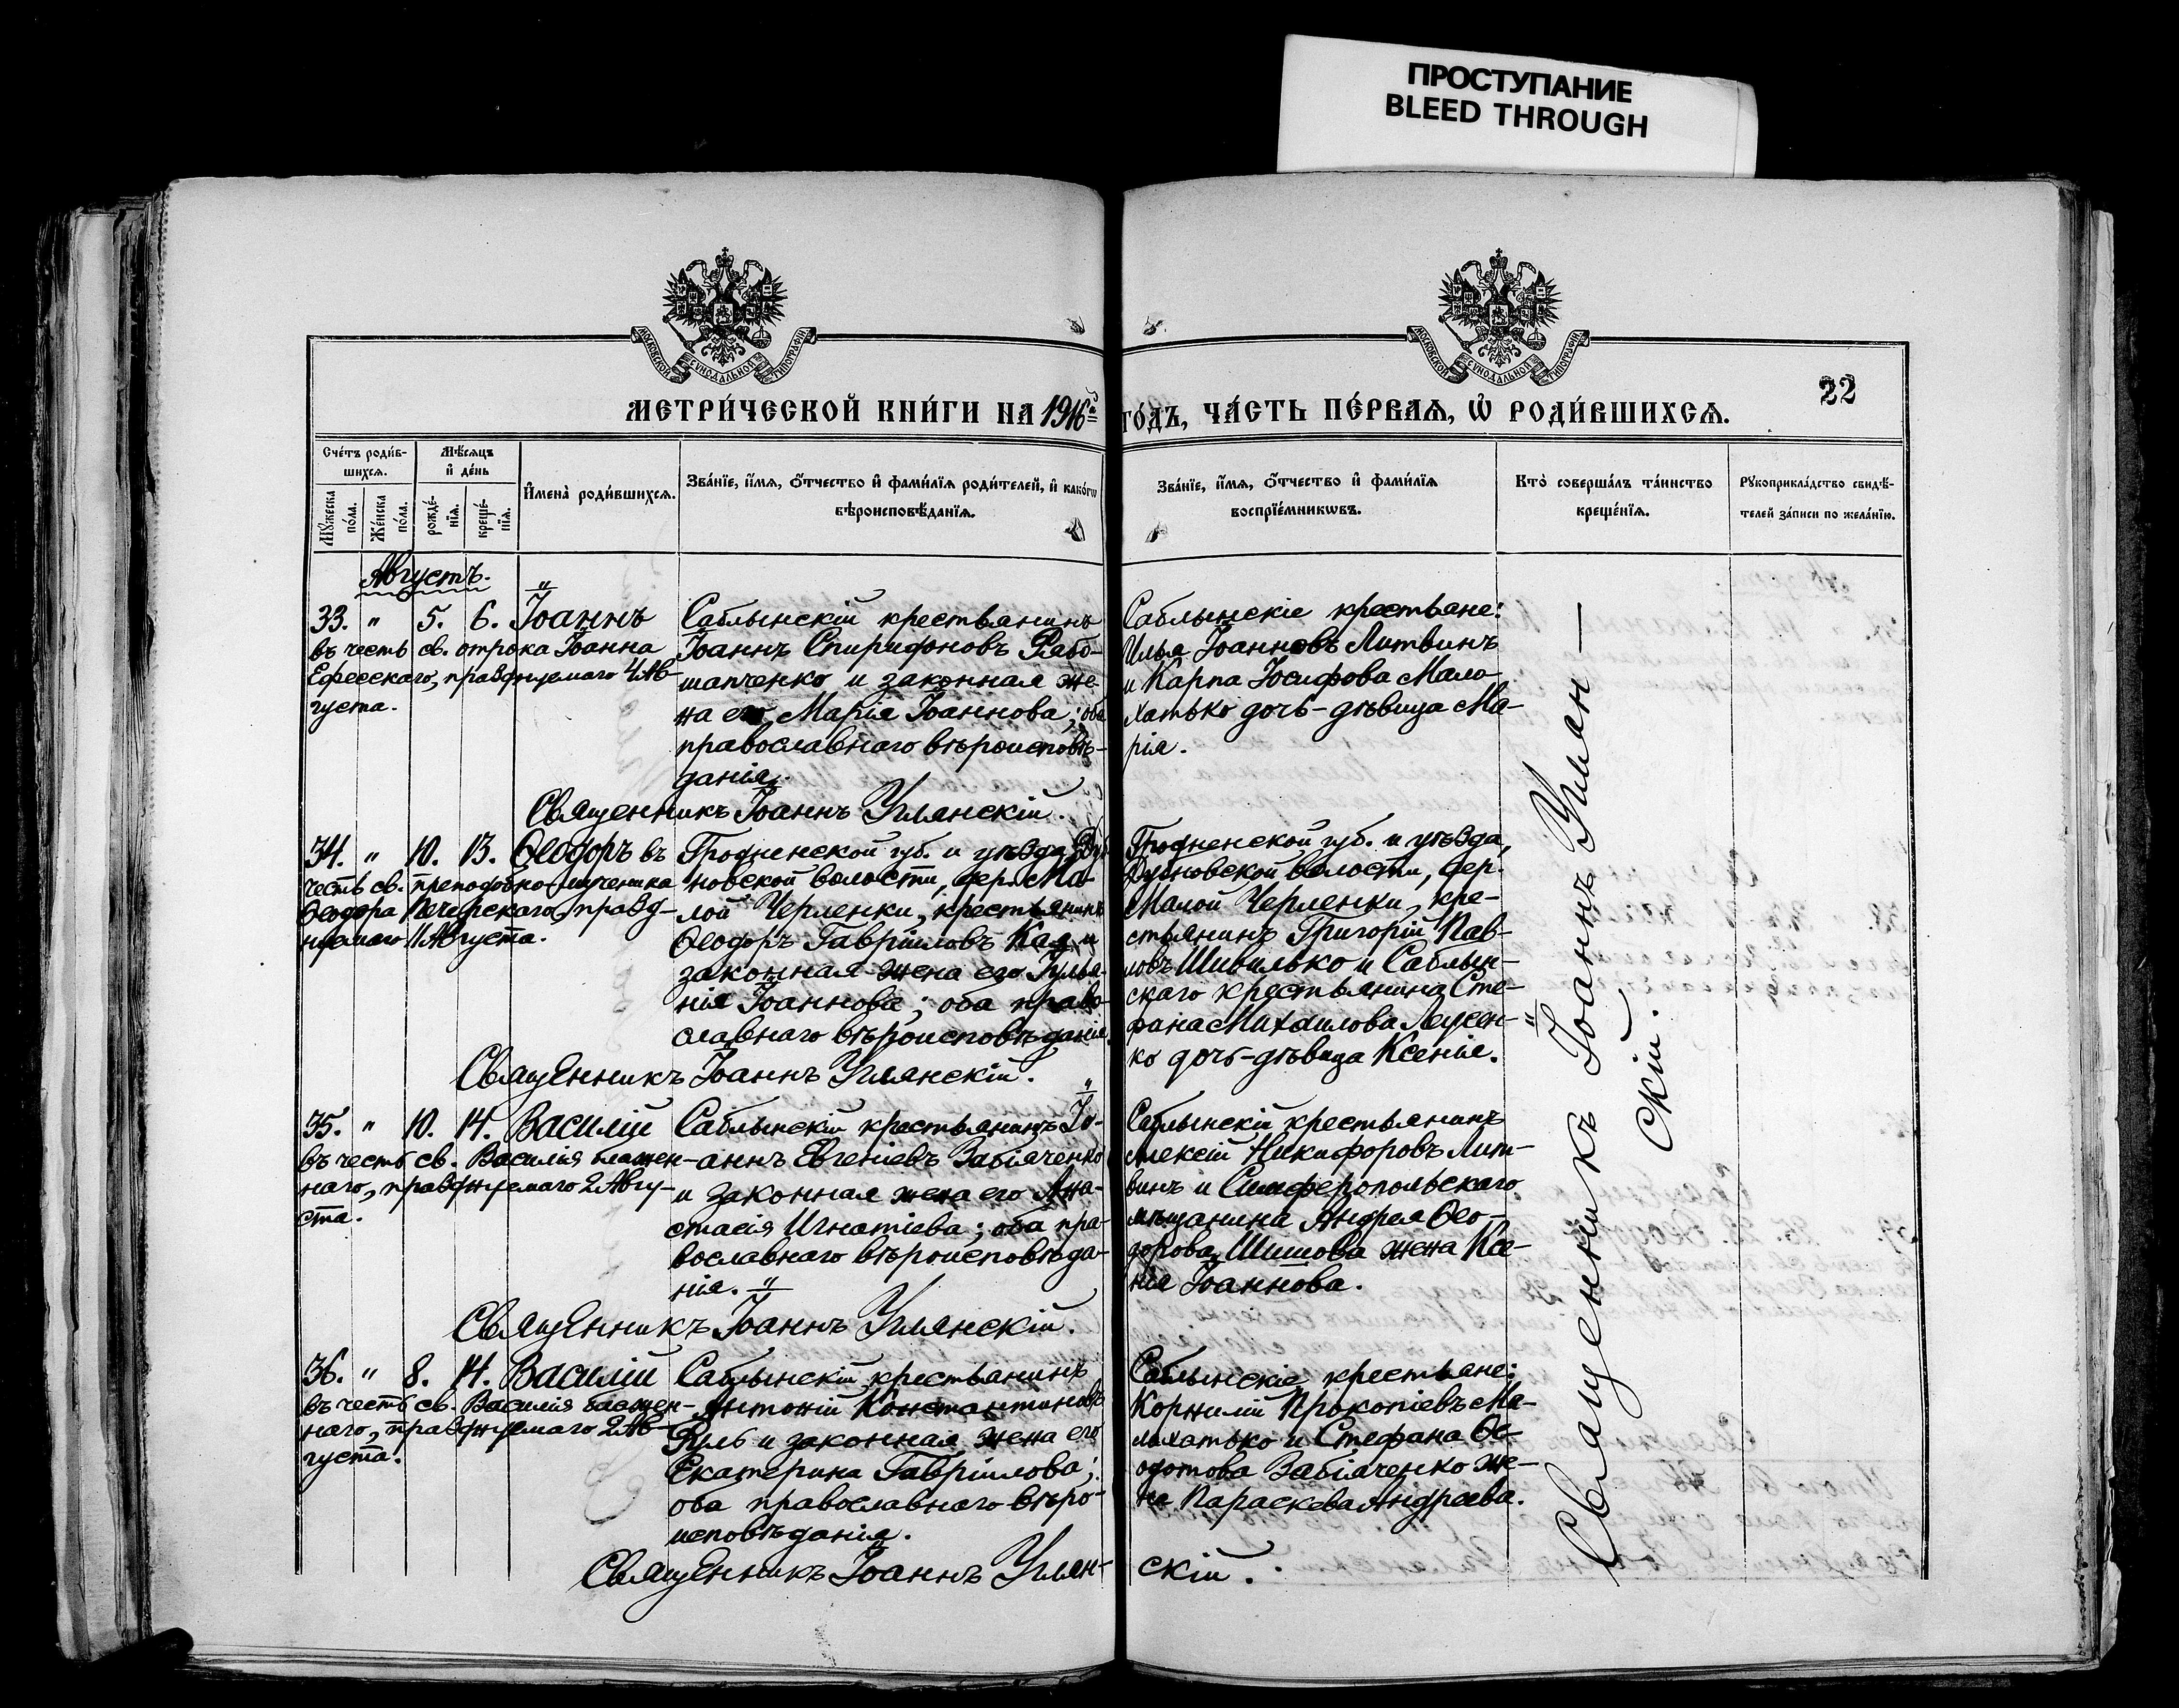 ПРОСТУПАНИЕ
BLEED THROUGH
МОСКОВСКОЙ СѴНОДАЛЬНОЙ ТИПОГРАФІИ
МОСКОВСКОЙ СѴНОДАЛЬНОЙ ТИПОГРАФІИ
22
МЕТРИ́ЧЕСКОЙ КНИ́ГИ НА 1916й
ГО́ДЪ, ЧА́СТЬ ПЕ́РВАѦ, Ѡ҆ РОДИ́ВШИХСѦ.
Сче́тъ роди́в-
шихсѧ.
Мꙋ́жеска
по́ла.
Же́нска
по́ла.
Мѣ́сѧцъ
и҆ де́нь
рожде́-
нїѧ.
креще́-
нїѧ.
И҆мена̀ роди́вшихсѧ.
Зва́нїе, и҆́мѧ, ѻ҆́тчество и҆ фами́лїѧ роди́телей, и҆ како́гѡ
вѣроисповѣ́данїѧ.
Зва́нїе, и҆́мѧ, ѻ҆́тчество и҆ фами́лїѧ
воспрїе́мникѡвъ.
Кто̀ соверша́лъ та́инство
креще́нїѧ.
Рꙋкоприкла́дство свидѣ́-
телей за́писи по жела́нїю.
Августъ.
33. " 5. 6. Іоаннъ
въ честь св. отрока Іоанна
Ефесскаго, празднуемаго 4 Ав-
густа.
Саблынскій крестьянинъ
Іоаннъ Спиридоновъ Рябо-
шапченко и законная же-
на его Марія Іоаннова; оба
православнаго вѣроисповѣ-
данія.
Саблынскіе крестьяне:
Илья Іоанновъ Литвинъ
и Карпа Іосифова Мало-
хатько дочь-дѣвица Ма-
рія.
Священникъ Іоаннъ Углянскій.
34. " 10. 13. Ѳеодоръ въ
честь св. преподобно-мученика
Ѳеодора Печерскаго, празд-
нуемаго 11 Августа.
Гродненской губ. и уѣзда, Дуб-
новской волости, дер. Ма-
лой Черленки, крестьянинъ
Ѳеодоръ Гавріиловъ и
законная жена его Іулья-
нія Іоаннова; оба право-
славнаго вѣроисповѣданія.
Гродненской губ. и уѣзда,
Дубновской волости, дер.
Малой Черленки, кре-
стьянинъ Григорій Пав-
ловъ Шивилько и Саблын-
скаго крестьянина Сте-
фана Михаилова
ко дочь-дѣвица Ксенія.
Священникъ Іоаннъ Углянскій.
35. " 10. 14. Василій
въ честь св. Василія блажен-
наго, празднуемаго 2 Авгу-
ста.
Саблынскій крестьянинъ Іо-
аннъ Евгеніевъ Забіяченко
и законная жена его Ана-
стасія Игнатіева; оба пра-
вославнаго вѣроисповѣда-
нія.
Саблынскій крестьянинъ
Алексій Никифоровъ Лит-
винъ и Симферопольскаго
мѣщанина Андрея Ѳео-
дорова Шишова жена Ксе-
нія Іоаннова.
Священникъ Іоаннъ Углянскій.
36. " 8. 14. Василій
въ честь св. Василія блажен-
наго, празднуемаго 2 Ав-
густа.
Саблынскій крестьянинъ
Антоній Константиновъ
Руль и законная жена его
Екатерина Гавріилова;
оба православнаго вѣро-
исповѣданія.
Саблынскіе крестьяне:
Корнилій Прокопіевъ Ма-
лохатько и Стефана Ѳе-
одотова Забіяченко же-
на Параскева Андреева.
Священникъ Іоаннъ Углян-
скій.
Священникъ Іоаннъ Углян-
скій.